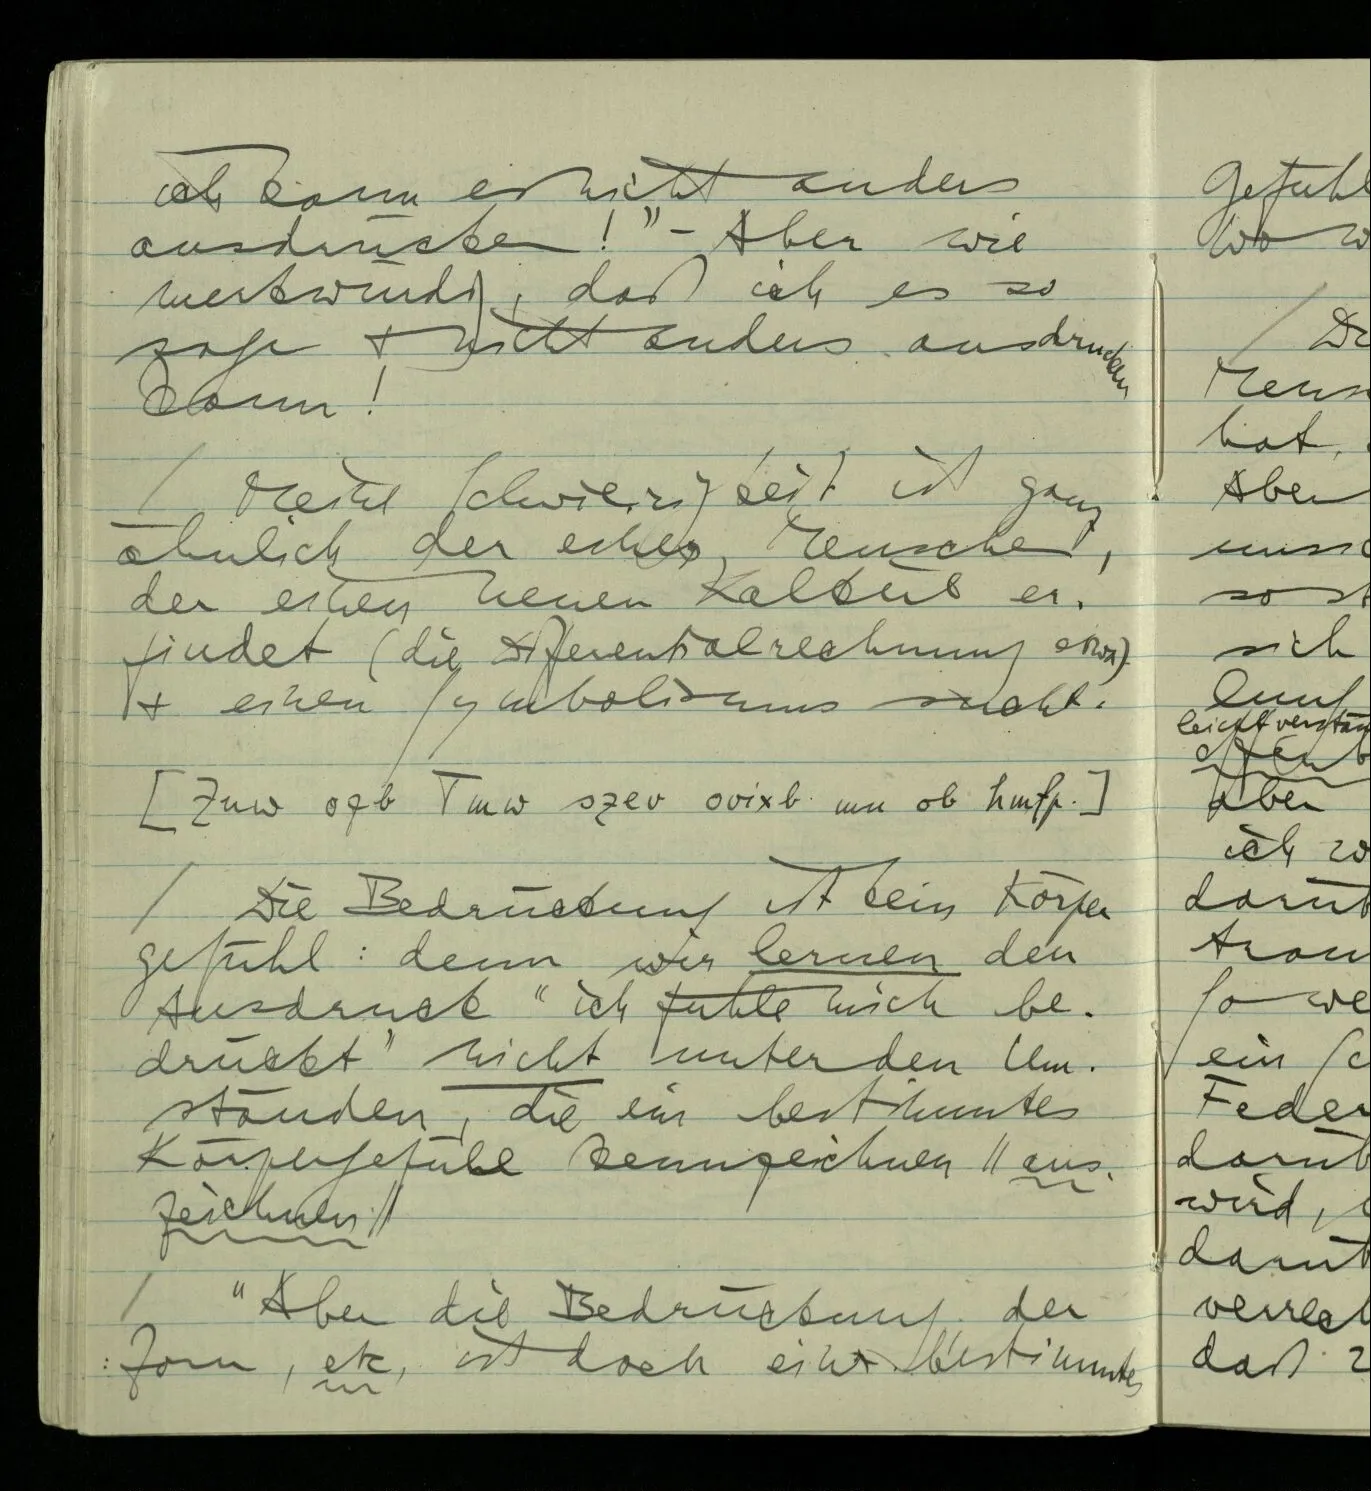 ich kann es nicht anders
ausdrücken!" – Aber wie
merkwürdig, daß ich es so
sage & nicht anders ausdrücken
kann!
/ Meine Schwierigkeit ist ganz
ähnlich der eines Menschen,
der einen neuen Kalkül er-
findet (die Differentialrechnung etwa)
& einen Symbolismus sucht.
[Znw oqb Tmw szev ovixb mn ob hmfp.]
/ Die Bedrückung ist kein Körper
gefühl: denn wir lernen den
Ausdruck "ich fühle mich be-
drückt" nicht unter den Um-
ständen, die ein bestimmtes
Körpergefühl kennzeichnen // aus-
zeichnen //
/ "Aber die Bedrückung, der
Zorn, etc, ist doch ein bestimmtes
Gefühl
wo w
/ De
Mens
hat,
Aber
so st
sich
lung
leicht verstän
aber
ich
darüb
So we
ein Sc
Feder
darüb
wird,
darüb
daß